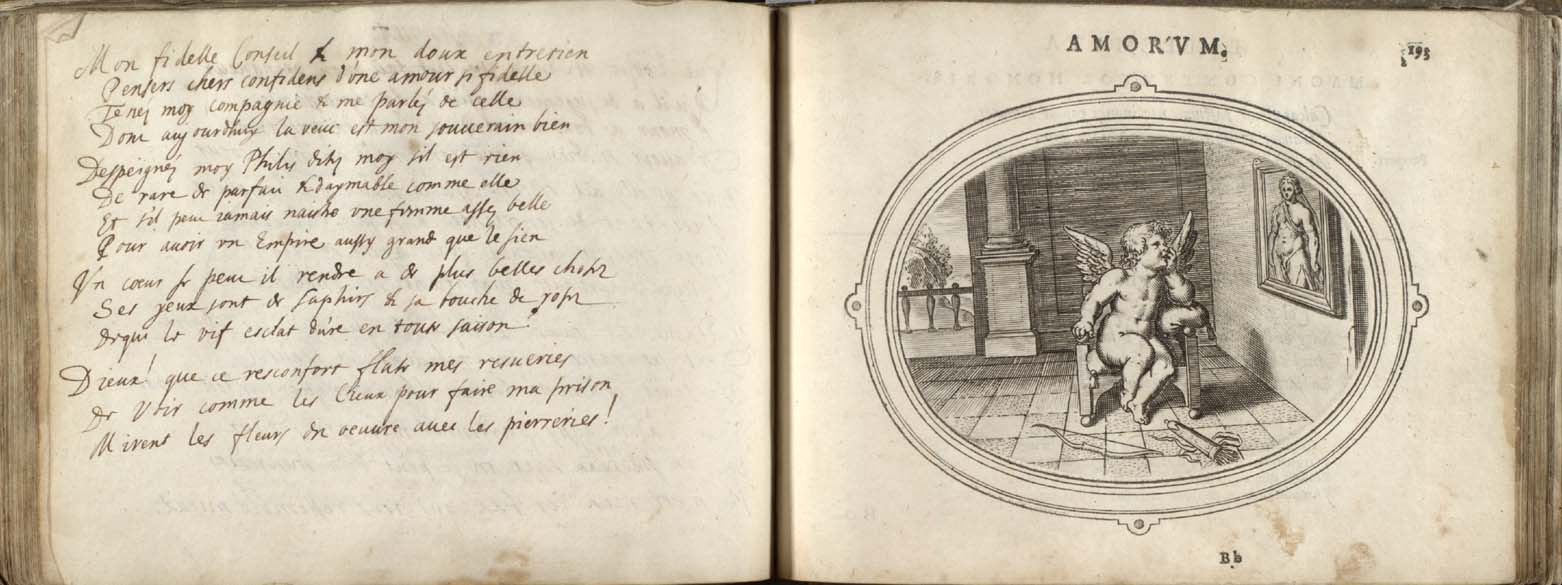 Mon fidelle Conseil & mon doux entretien
Pensers chers confidens d'une amour si fidelle
Tenez moy compagnie & me parlez de celle
Dont aujourdhuy la veue est mon souuerain bien
Depeignez moy Philis dites moy s'il est rien
De rare de parfait & d'aymable comme elle
Et s'il peut iamais naistre vne femme assez belle
Pour auoir vn Empire aussy grand que le sien
Vn cœur se peut il rendre a de plus belles choses
Ses yeux sont de saphirs & sa bouche de roses
De qui le vif esclat dure en toute saison
Dieux! que ce reconfort flate mes resueries
De voir comme les Cieux pour faire ma prison
Mirent les fleurs en oeuure auec les pierreries!
AMORVM.
195
Bb